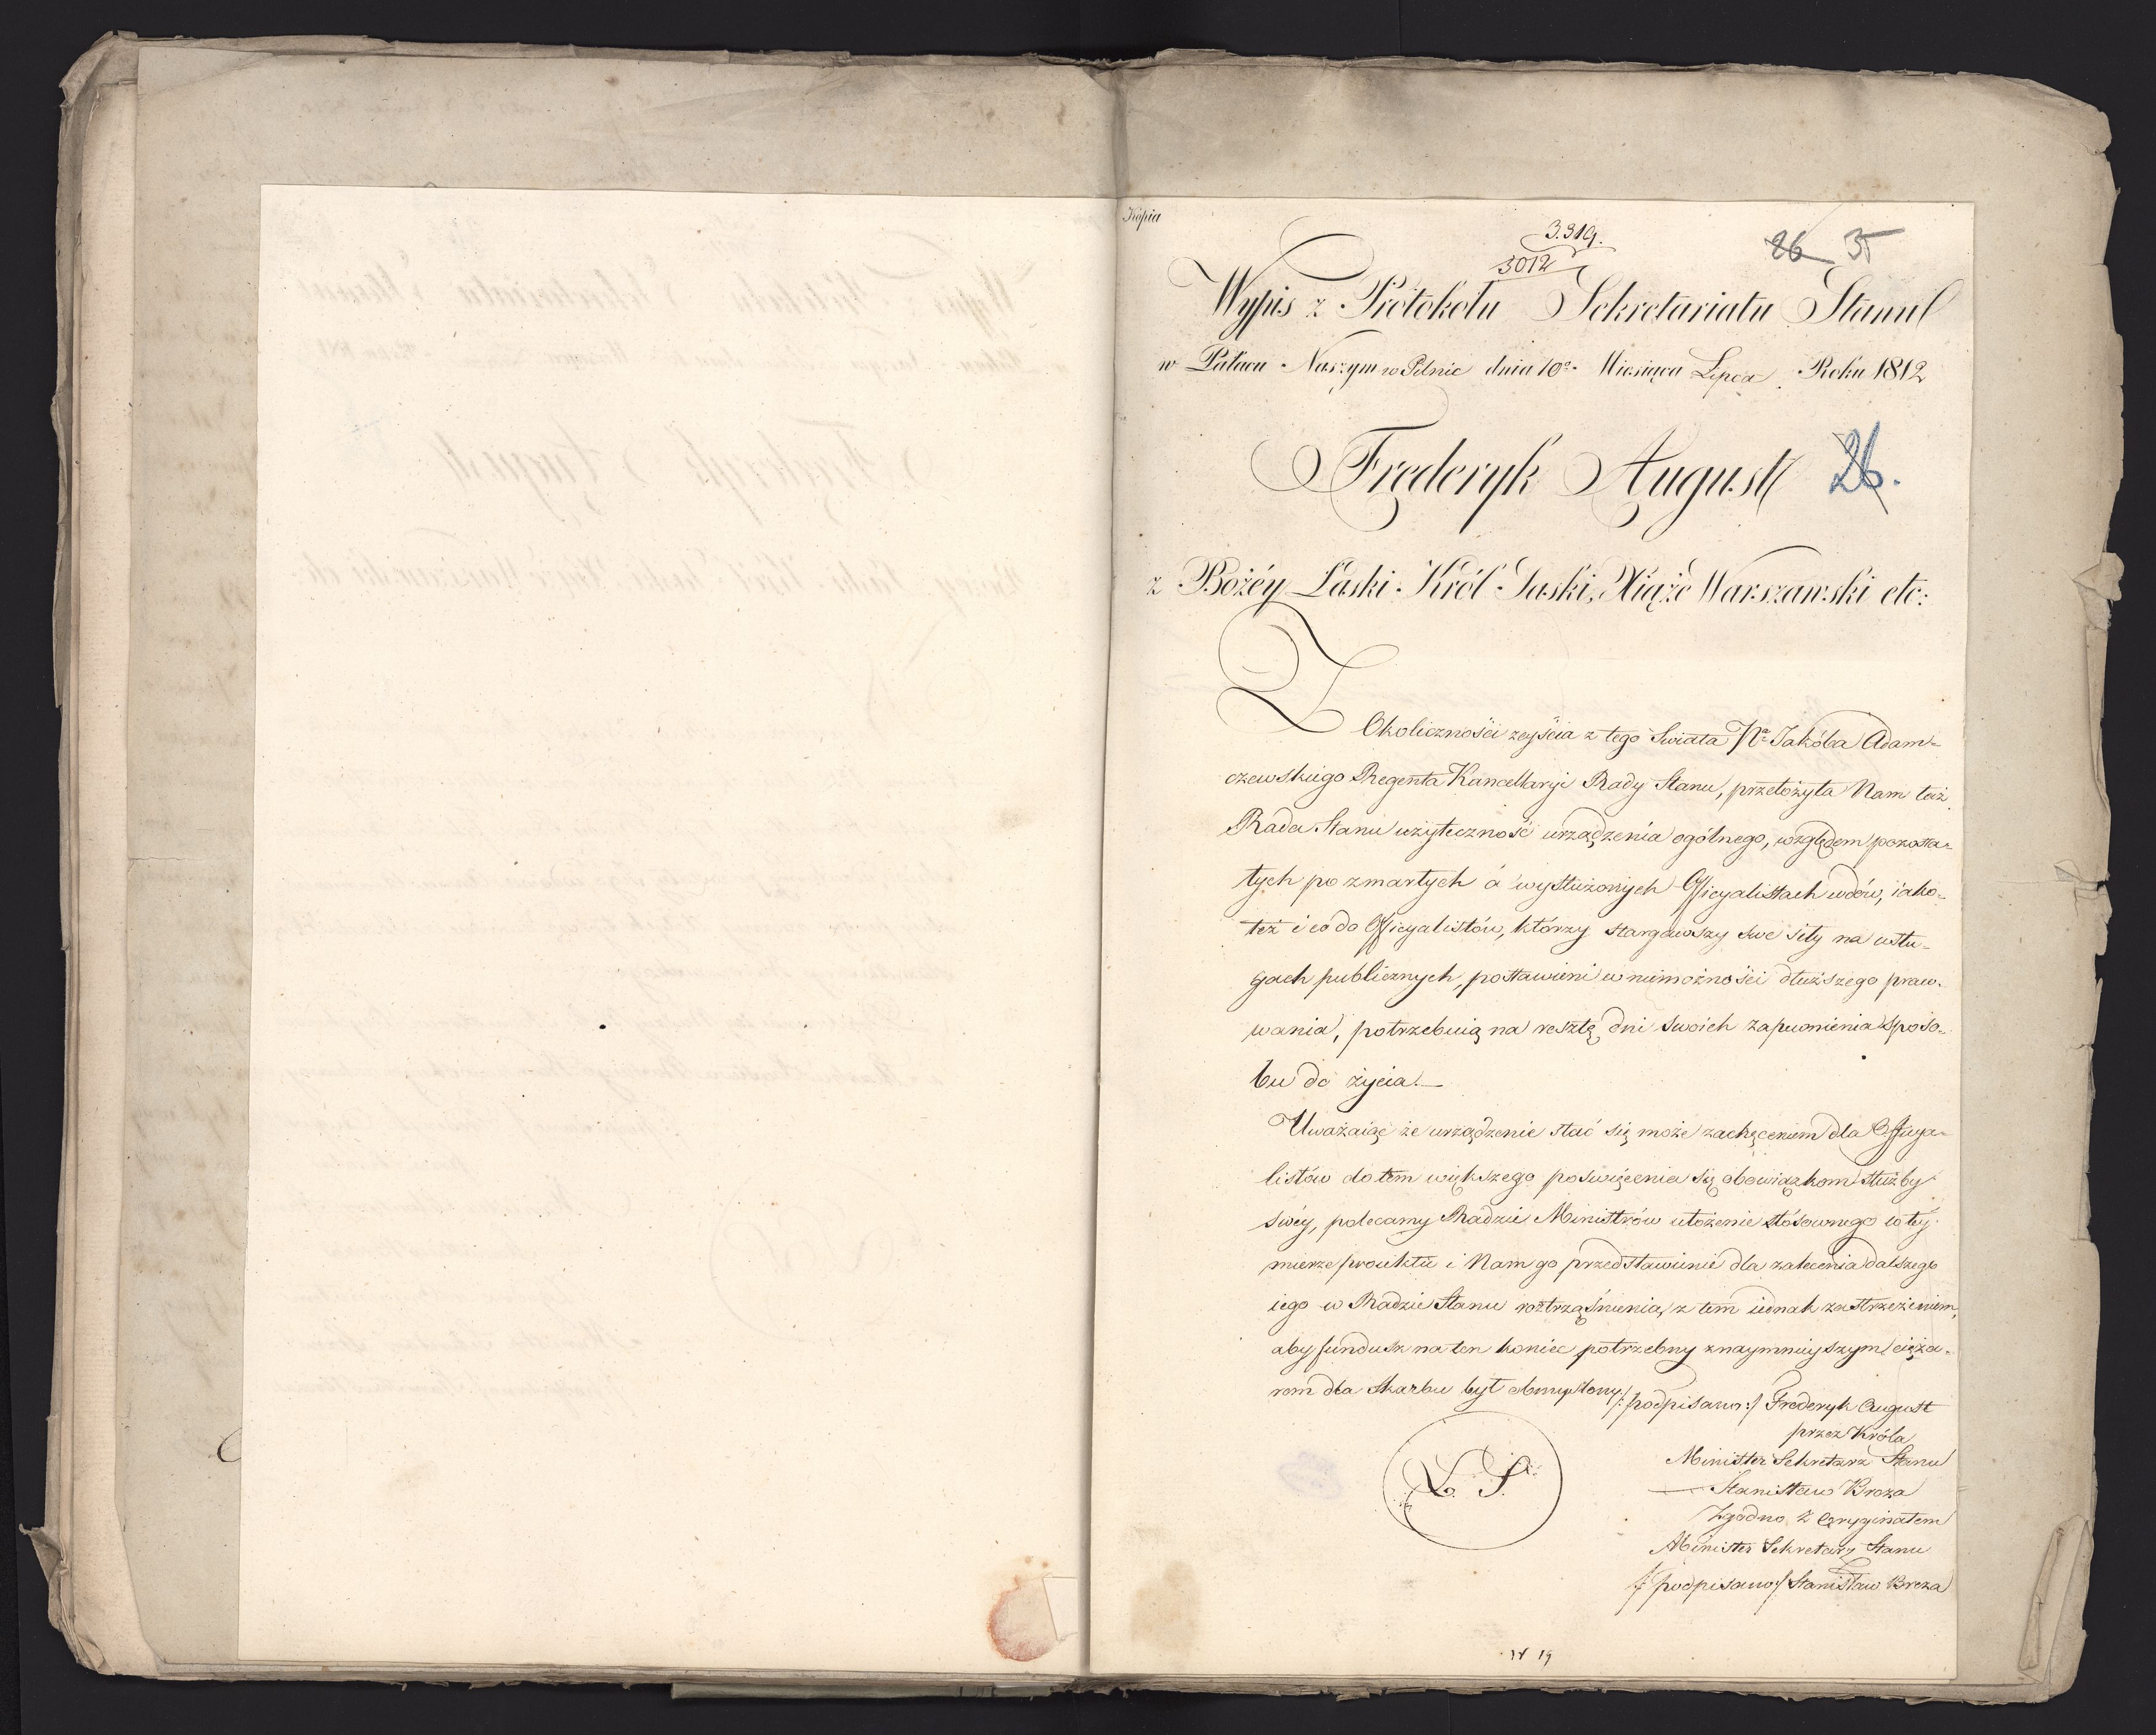 Kopia
3.319.
3012
26 35
Wypis z Protokołu Sekretariatu Stanu
w Pałacu Naszym w Pilnic dnia 10º Miesiąca Lipca Roku 1812
Fręderyk August
26.
z Bożéy Łaski Król Saski, Xiąże Warszawski etc:
Z Okolicznośći zeyścia z tego Swiata Jakóba Adam-
czewskiego Regenta Kancellaryi Rady Stanu, przełożyła Nam taż
Rada Stanu użyteczność urządzenia ogólnego, względem pozosta-
łych po zmarłych a wysłużonych Officyalistach wdów, iako-
też i co do Officyalistów, którzy stargawszy swe siły na usłu-
gach publicznych, postawieni w niemożności dłuższego praco-
wania, potrzebuią na resztę dni swoich zapewnienia sposo-
bu do życia.—
Uważaiąc że urządzenie stać się może zachęceniem dla Officya-
listów do tem większego poswięcenia się obowiązkom służby
swéy, polecamy Radzie Ministrów ułożenie stósownego w tey
mierze proiektu i Nam go przedstawienie dla zalecenia dalszego
iego w Radzie Stanu roztrząśnienia, z tem iednak zastrzeżeniem,
aby fundusz na ten koniec potrzebny znaymnieyszym cięża-
rem dla Skarbu był obmyślony
/:podpisano:/ Fréderyk August
przez Króla
Minister Sekretarz Stanu
Stanisław Breza
L. S.
Zgodno z Oryginałem
Minister Sekretarz Stanu
/:podpisano:/ Stanisław Breza
19